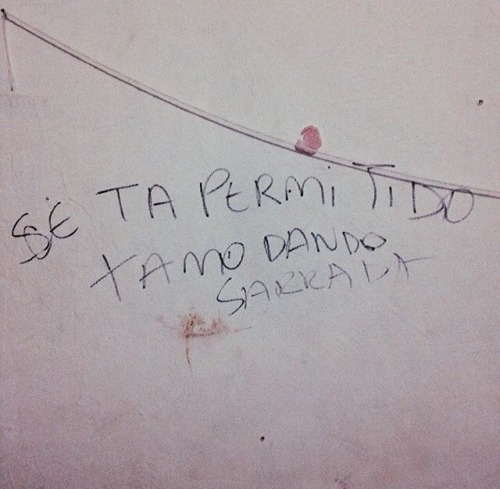 SE TA PERMITIDO
TAMO DANDO
SARRADA